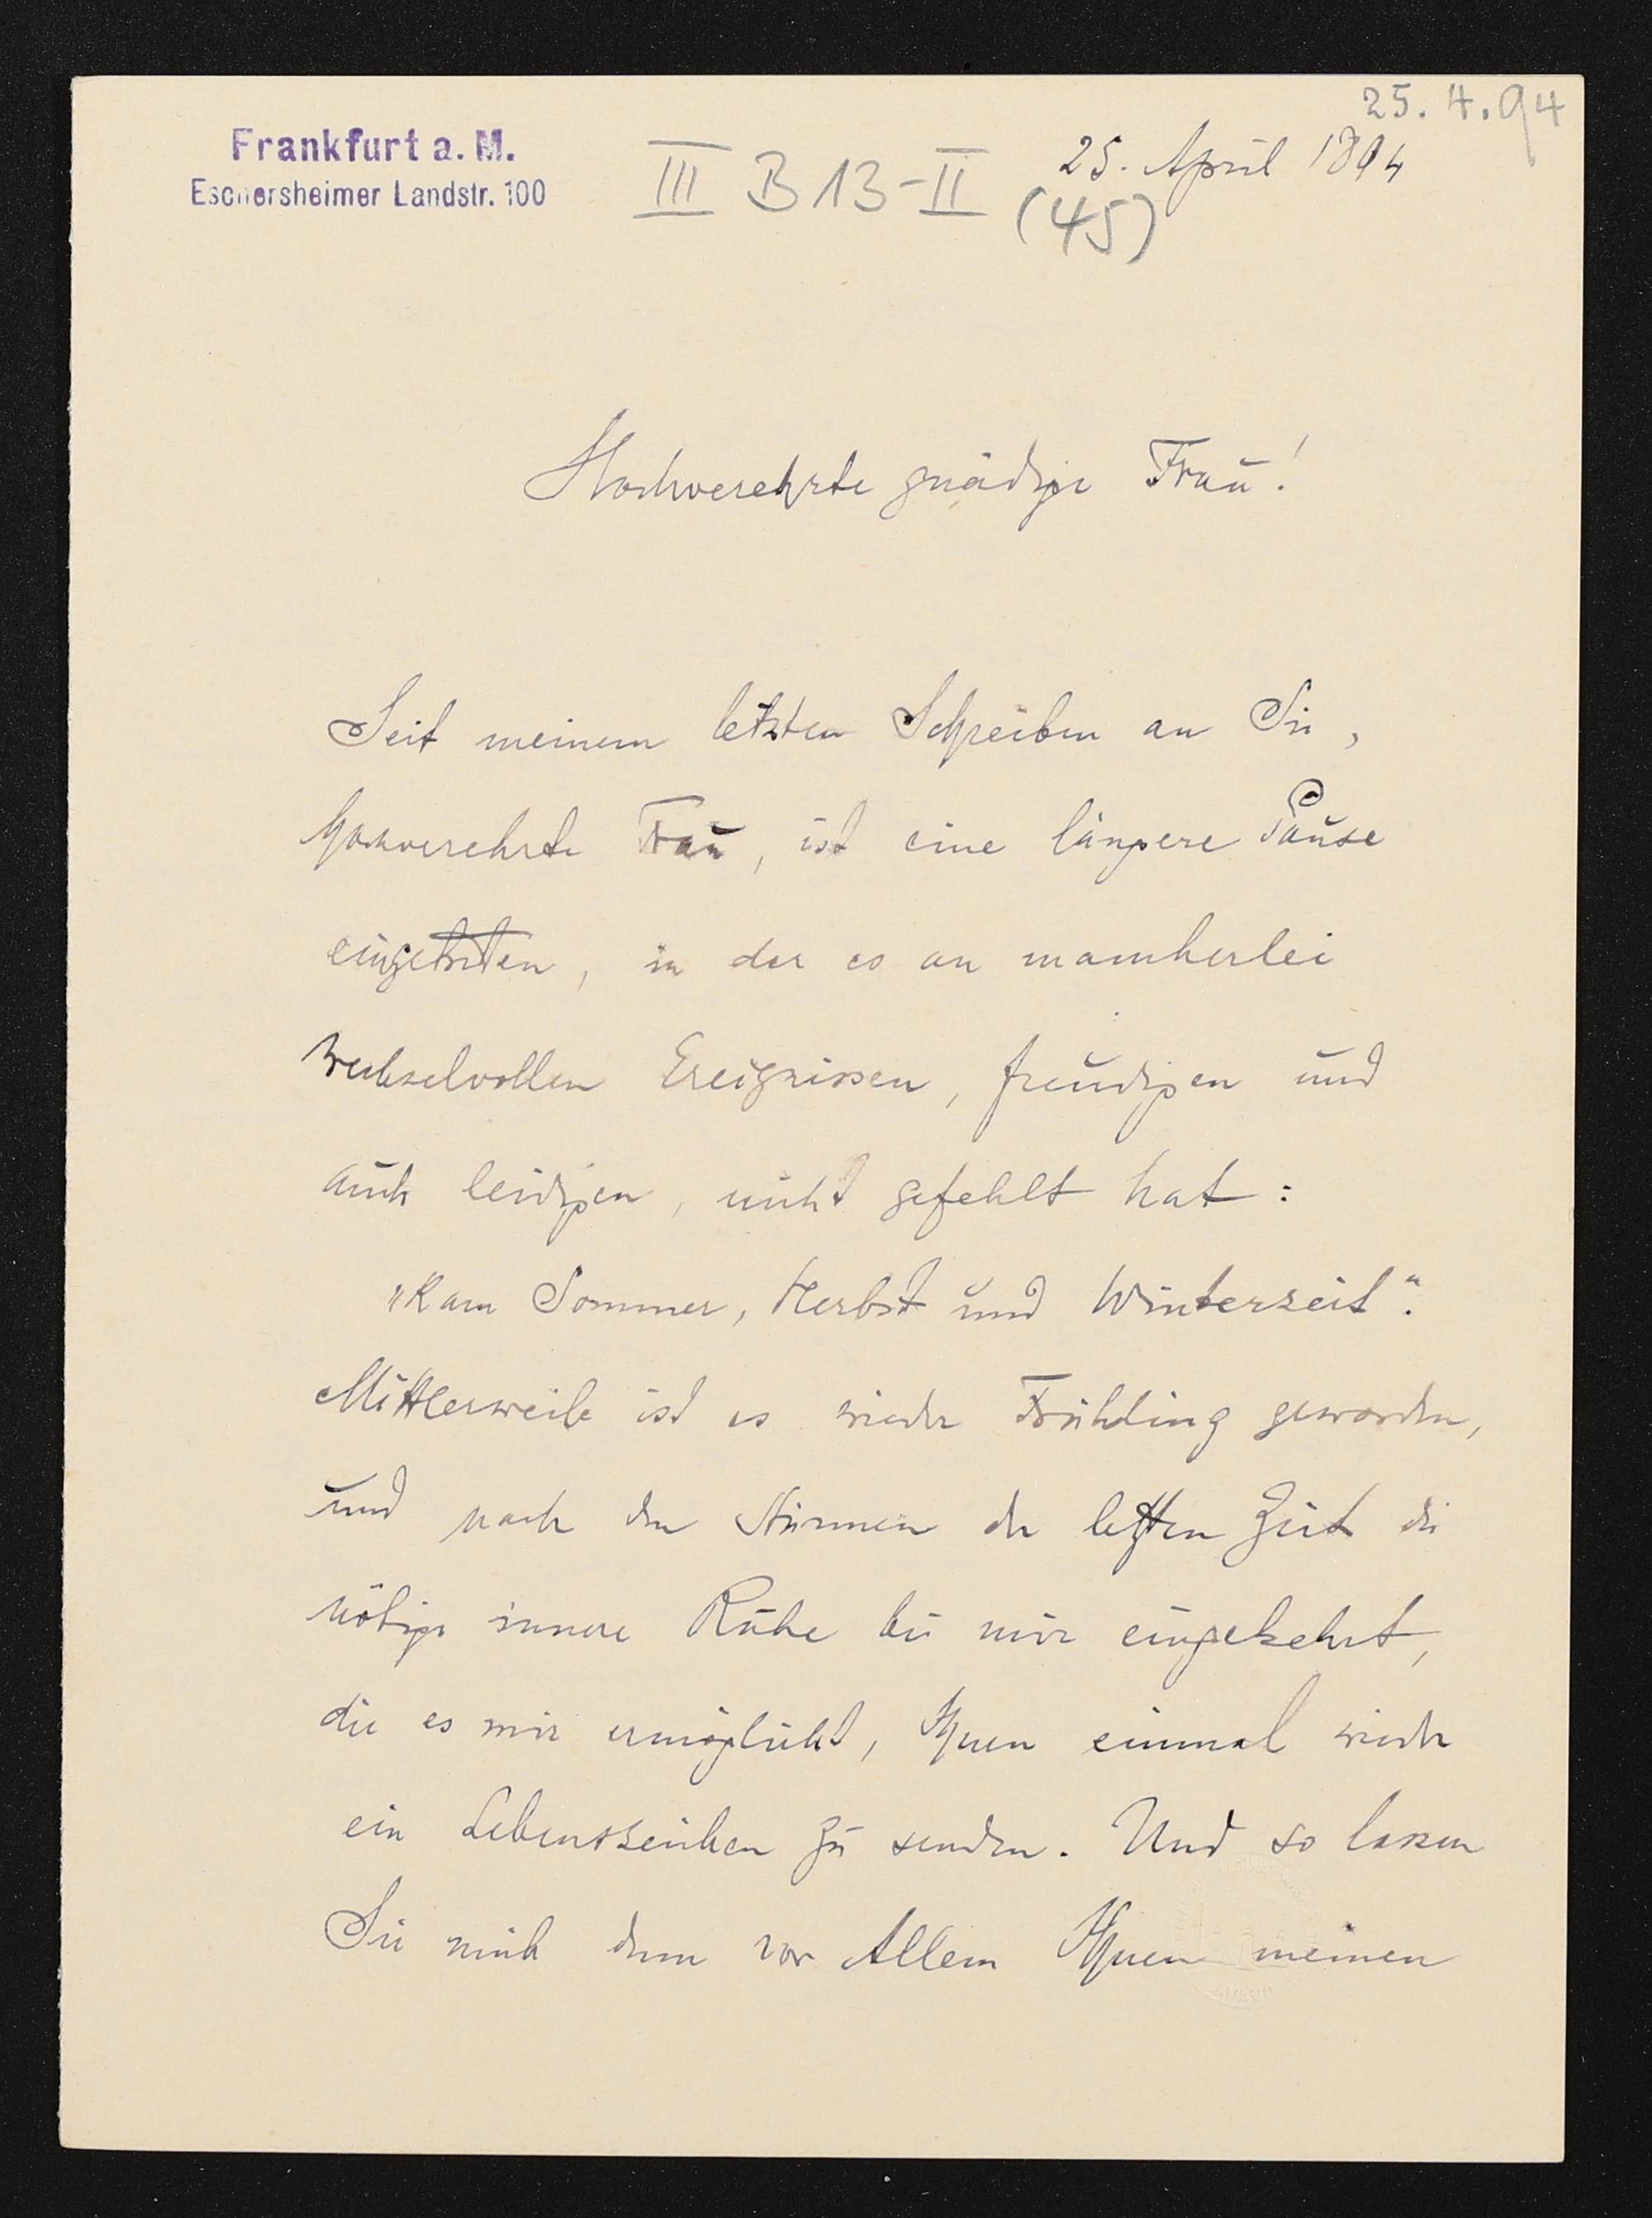 25. 4. 94
Frankfurt a. M.
Eschersheimer Landstr. 100
III B 13-II
25. April 1894
(45)
Hochverehrte gnädige Frau!
Seit meinem letzten Schreiben an Sie,
hochverehrte Frau, ist eine längere Pause
eingetreten, in der es an mancherlei
wechselvollen Ereignissen, freudigen und
auch leidigen, nicht gefehlt hat:
"Kam Sommer, Herbst und Winterzeit".
Mittlerweile ist es wieder Frühling geworden,
und nach den Stürmen der letzten Zeit die
nötige innere Ruhe bei mir eingekehrt,
die es mir ermöglicht, Ihnen einmal wieder
ein Lebenszeichen zu senden. Und so lassen
Sie mich denn vor Allem Ihnen meinen